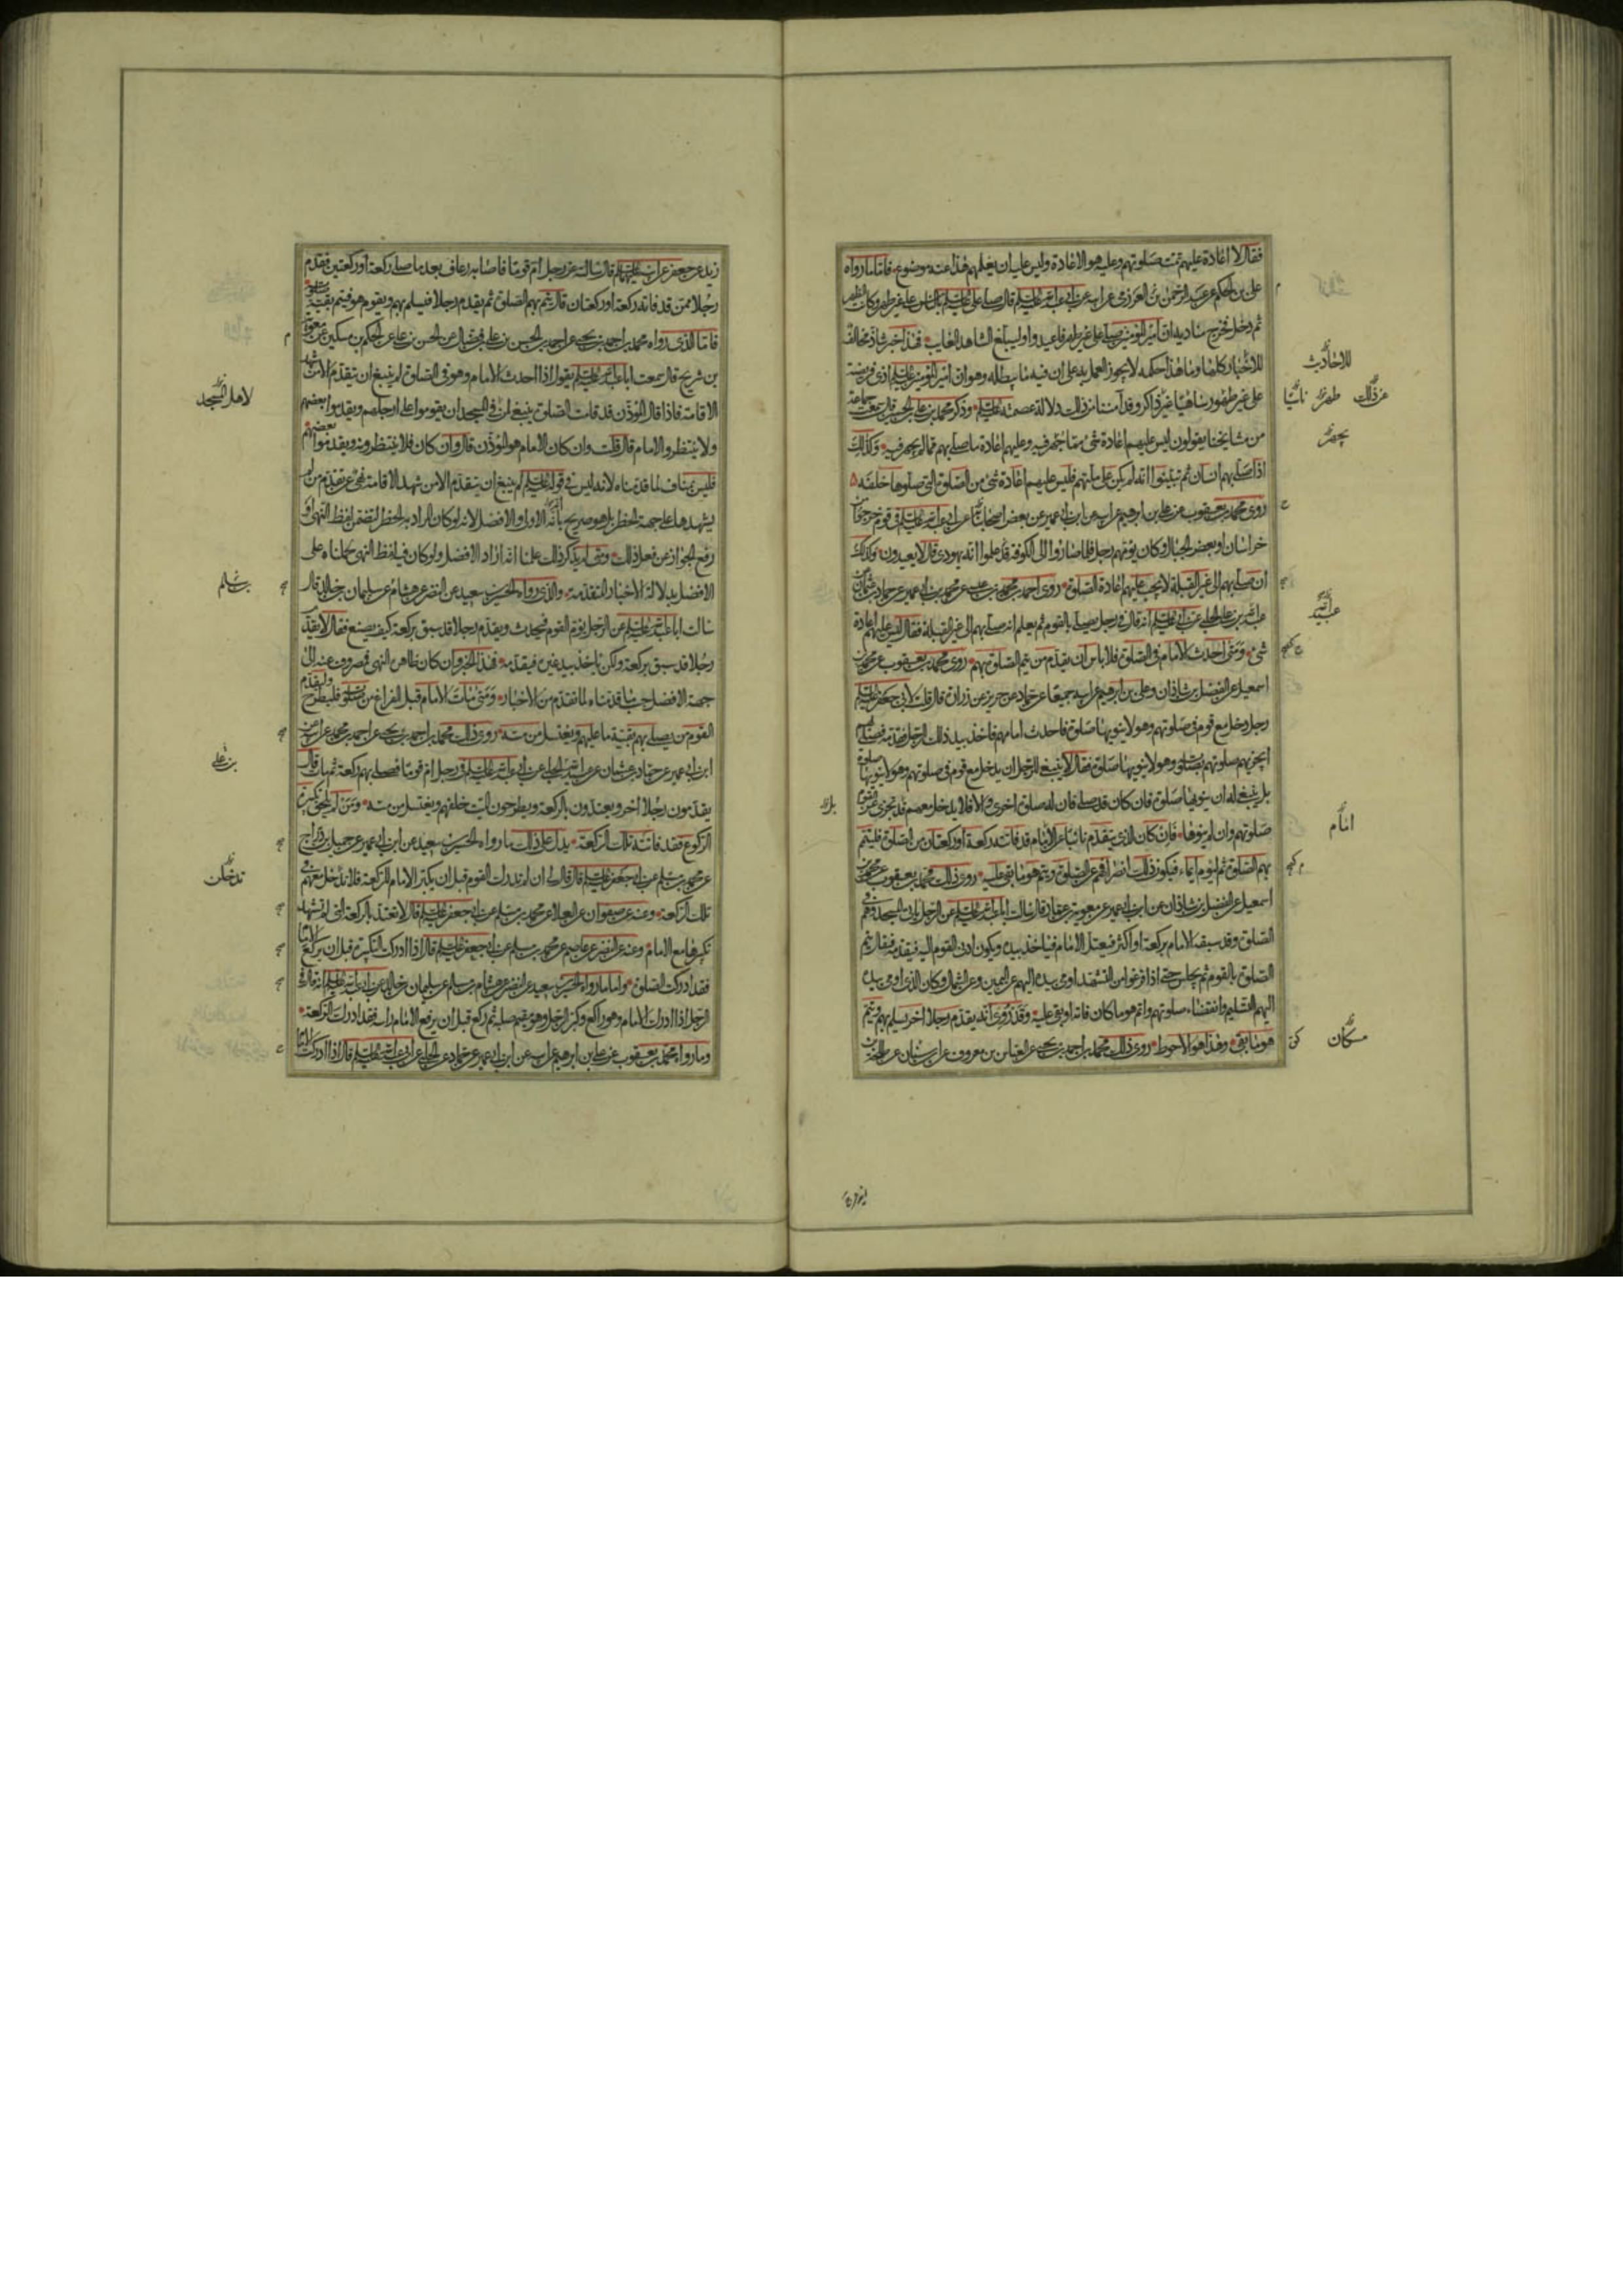 فقال لا اعادة عليهم تمت صلوتهم وعليه هو الاعادة وليس عليه ان يعلمهم هذا عنه موضوع فاما ما رواه
على بن الحكم عن عبد الرحمن بن العرزمى عن ابيه عن ابى عبد الله عليه السلم قال صلى على عليه السلم بالناس على غير طهر وكانت الظهر
ثم دخل فخرج مناديه ان امير المؤمنين صلى على غير طهر فاعيدوا وليبلغ الشاهد الغايب فهذا خبر شاذ مخالف
للاخبار كلها وما هذا حكمه لا يجوز العمل به على ان فيه ما يبطله وهو ان امير المؤمنين عليه السلم ادى فريضة
على غير طهور ساهيا غير ذاكر وقد آمننا من ذلك دلالة عصمته عليه السلم وذكر محمد بن على بن الحسين قال سمعت جماعة
من مشايخنا يقولون ليس عليهم اعادة شئ مما جهر فيه وعليهم اعادة ما صلى بهم مما لم يجهر فيه وكذلك
اذا صلى بهم انسان ثم تبينوا انه لم يكن على ملتهم فليس عليهم اعادة شئ من الصلوة التى صلوها خلفه
روى محمد بن يعقوب عن على بن ابرهيم عن ابيه عن ابن ابى عمير عن بعض اصحابنا عن ابى عبد الله عليه السلم فى قوم خرجوا من
خراسان او بعض الجبال وكان يؤمهم رجل فلما صاروا الى الكوفة علموا انه يهودى قال لا يعيدون وكذلك
ان صلى بهم الى غير القبلة لا يجب عليهم اعادة الصلوة روى احمد بن محمد بن عيسى عن محمد بن ابى عمير عن حماد بن عثمان عن
عبد الله بن على الحلبى عن ابى عبد الله عليه السلم انه قال فى رجل يصلى بالقوم ثم يعلم انه صلى بهم الى غير القبلة فقال ليس عليهم اعادة
شئ ومتى احدث الامام فى الصلوة فلا باس ان يقدم من يتم الصلوة بهم روى محمد بن يعقوب عن محمد بن
اسمعيل عن الفضل بن شاذان وعلى بن ابرهيم عن ابيه جميعا عن حماد عن حريز عن زرارة قال قلت لابى جعفر عليه السلم
رجل دخل مع قوم فى صلوتهم وهو لا ينويها صلوة فاحدث امامهم فاخذ بيد ذلك الرجل فقدمه فصلى بهم
ايجزيهم صلوتهم بصلوته وهو لا ينويها صلوة فقال لا ينبغى للرجل ان يدخل مع قوم فى صلوتهم وهو لا ينويها صلوة
بل ينبغى له ان ينويها صلوة فان كان قد صلى فان له صلوة اخرى والا فلا يدخل معهم قد تجزى عن القوم
صلوتهم وان لم ينوها فان كان الذى يتقدم نائبا عن الامام قد فاتته ركعة او ركعتان من الصلوة فليتم
بهم الصلوة ثم ليوم ايماء فيكون ذلك انصرافهم عن الصلوة ويتم هو ما بقى عليه روى ذلك محمد بن يعقوب عن محمد بن
اسمعيل عن الفضل بن شاذان عن ابن ابى عمير عن معوية بن عمار قال سالت ابا عبد الله عليه السلم عن الرجل ياتى المسجد وهم فى
الصلوة وقد سبقه الامام بركعة او اكثر فيعتل الامام فياخذ بيده ويكون ادنى القوم اليه فيقدمه فقال يتم
الصلوة بالقوم ثم يجلس حتى اذا فرغوا من التشهد اومى بيده اليهم عن اليمين وعن الشمال وكان الذى اومى بيده
اليهم التسليم وانقضاء صلوتهم واتم هو ما كان فاته او بقى عليه وقد روى انه يقدم رجلا اخر يسلم بهم ويتم
هو ما بقى وهذا هو الاحوط روى ذلك محمد بن احمد بن يحيى عن العباس بن معروف عن ابن سنان عن طلحة بن
للاحاديث
عن ذلك
طهر
ناسيا
يجهر
عبيد
امام
مسكان
زيد عن جعفر عن ابيه عليهما السلم قال سالته عن رجل ام قوما فاصابه رعاف بعد ما صلى ركعة او ركعتين فقدم
رجلا ممن قد فاته ركعة او ركعتان قال يتم بهم الصلوة ثم يقدم رجلا فيسلم بهم ويقوم هو فيتم بقية صلوته
فاما الذى رواه محمد بن احمد بن يحيى عن احمد بن الحسن بن على بن فضال عن الحسن بن على عن الحكم بن مسكين عن معوية
بن شريح قال سمعت ابا عبد الله عليه السلم يقول اذا احدث الامام وهو فى الصلوة لم ينبغ ان يتقدم الا من شهد
الاقامة فاذا قال المؤذن قد قامت الصلوة ينبغى لمن فى المسجد ان يقوموا على ارجلهم ويقدموا بعضهم
ولا ينتظروا الامام قال قلت وان كان الامام هو المؤذن قال وان كان فلا ينتظرونه ويقدموا بعضهم
فليس بمناف لما قدمناه لانه ليس فى قوله عليه السلم لم ينبغ ان يتقدم الا من شهد الاقامة نفى عن تقدم من لم
يشهدها على جهة الحظر بل هو صريح بانه الاولى والافضل لانه لو كان المراد به الحظر لتضمن لفظ النهى او
رفع الجواز عن فعل ذلك ومتى لم يذكر ذلك علمنا انه اراد الافضل ولو كان فيه لفظ النهى حملناه على
الافضل بدلالة الاخبار المتقدمة والذى رواه الحسين بن سعيد عن النضر عن هشام عن سليمان بن خالد قال
سالت ابا عبد الله عليه السلم عن الرجل يؤم القوم فيحدث ويقدم رجلا قد سبق بركعة كيف يصنع فقال لا يقدم
رجلا قد سبق بركعة ولكن ياخذ بيد غيره فيقدمه فهذا الخبر وان كان ظاهره النهى فمصروف عنه الى
جهة الافضل حسب ما قدمناه لما تقدم من الاخبار ومتى مات الامام قبل الفراغ من صلوته فليطرح وليقدم
القوم من يصلى بهم بقية ما عليهم ويغتسل من مسه روى ذلك محمد بن احمد بن يحيى عن احمد بن محمد عن ابيه عن
ابن ابى عمير عن حماد بن عثمان عن عبيد الله الحلبى عن ابى عبد الله عليه السلم فى رجل ام قوما فصلى بهم ركعة ثم مات قال
يقدمون رجلا اخر ويعتدون بالركعة ويطرحون الميت خلفهم ويغتسل من مسه ومن لم يلحق تكبيرة
الركوع فقد فاتته تلك الركعة يدل على ذلك ما رواه الحسين بن سعيد عن ابن ابى عمير عن جميل بن دراج
عن محمد بن مسلم عن ابى جعفر عليه السلم قال قال لى ان لم تدرك القوم قبل ان يكبر الامام للركعة فلا تدخل معهم فى
تلك الركعة وعنه عن صفوان عن العلاء عن محمد بن مسلم عن ابى جعفر عليه السلم قال لا تعتد بالركعة التى لم تشهد
تكبيرها مع الامام وعنه عن النضر عن عاصم عن محمد بن مسلم عن ابى جعفر عليه السلم قال اذا ادركت التكبيرة قبل ان يركع الامام
فقد ادركت الصلوة واما ما رواه الحسين بن سعيد عن النضر عن هشام بن سالم عن سليمان بن خالد عن ابى عبد الله عليه السلم انه قال فى
الرجل اذا ادرك الامام وهو راكع وكبر الرجل وهو مقيم صلبه ثم ركع قبل ان يرفع الامام راسه فقد ادرك الركعة
وما رواه محمد بن يعقوب عن على بن ابرهيم عن ابيه عن ابن ابى عمير عن حماد عن الحلبى عن ابى عبد الله عليه السلم قال اذا ادركت الامام
لاهل المسجد
بن سالم
بن على
تدخلن